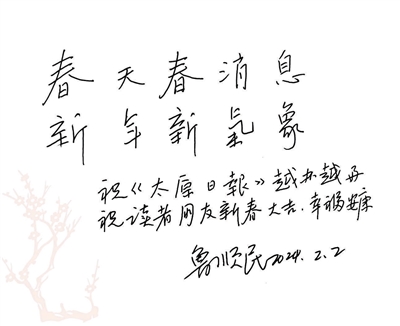 春天春消息
新年新氣象
祝《太原日報》越办越好
祝读者网友新春大吉.幸福安康
鲁顺民2024.2.2